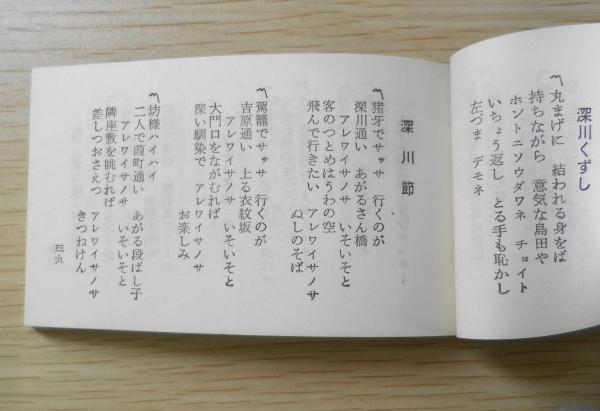 深川くずし
〽丸まげに 結われる身をば
持ちながら 意気な島田や
ホントニソウダワネ チョイト
いちょう返し とる手も恥かし
左づま デモネ
深川節
〽猪牙でサッサ 行くのが
深川通い あがるさん橋
アレワイサノサ いそいそと
客のつとめはうわの空
飛んで行きたい アレワイサノサ
ぬしのそば
〽駕籠でサッサ 行くのが
吉原通い 上る衣紋坂
アレワイサノサ いそいそと
大門口をながむれば
深い馴染で アレワイサノサ
お楽しみ
〽坊様ハイハイ
二人で葭町通い あがる段ばし子
アレワイサノサ いそいそと
隣座敷を眺むれば
差しつおさえつ アレワイサノサ
きつねけん
三九